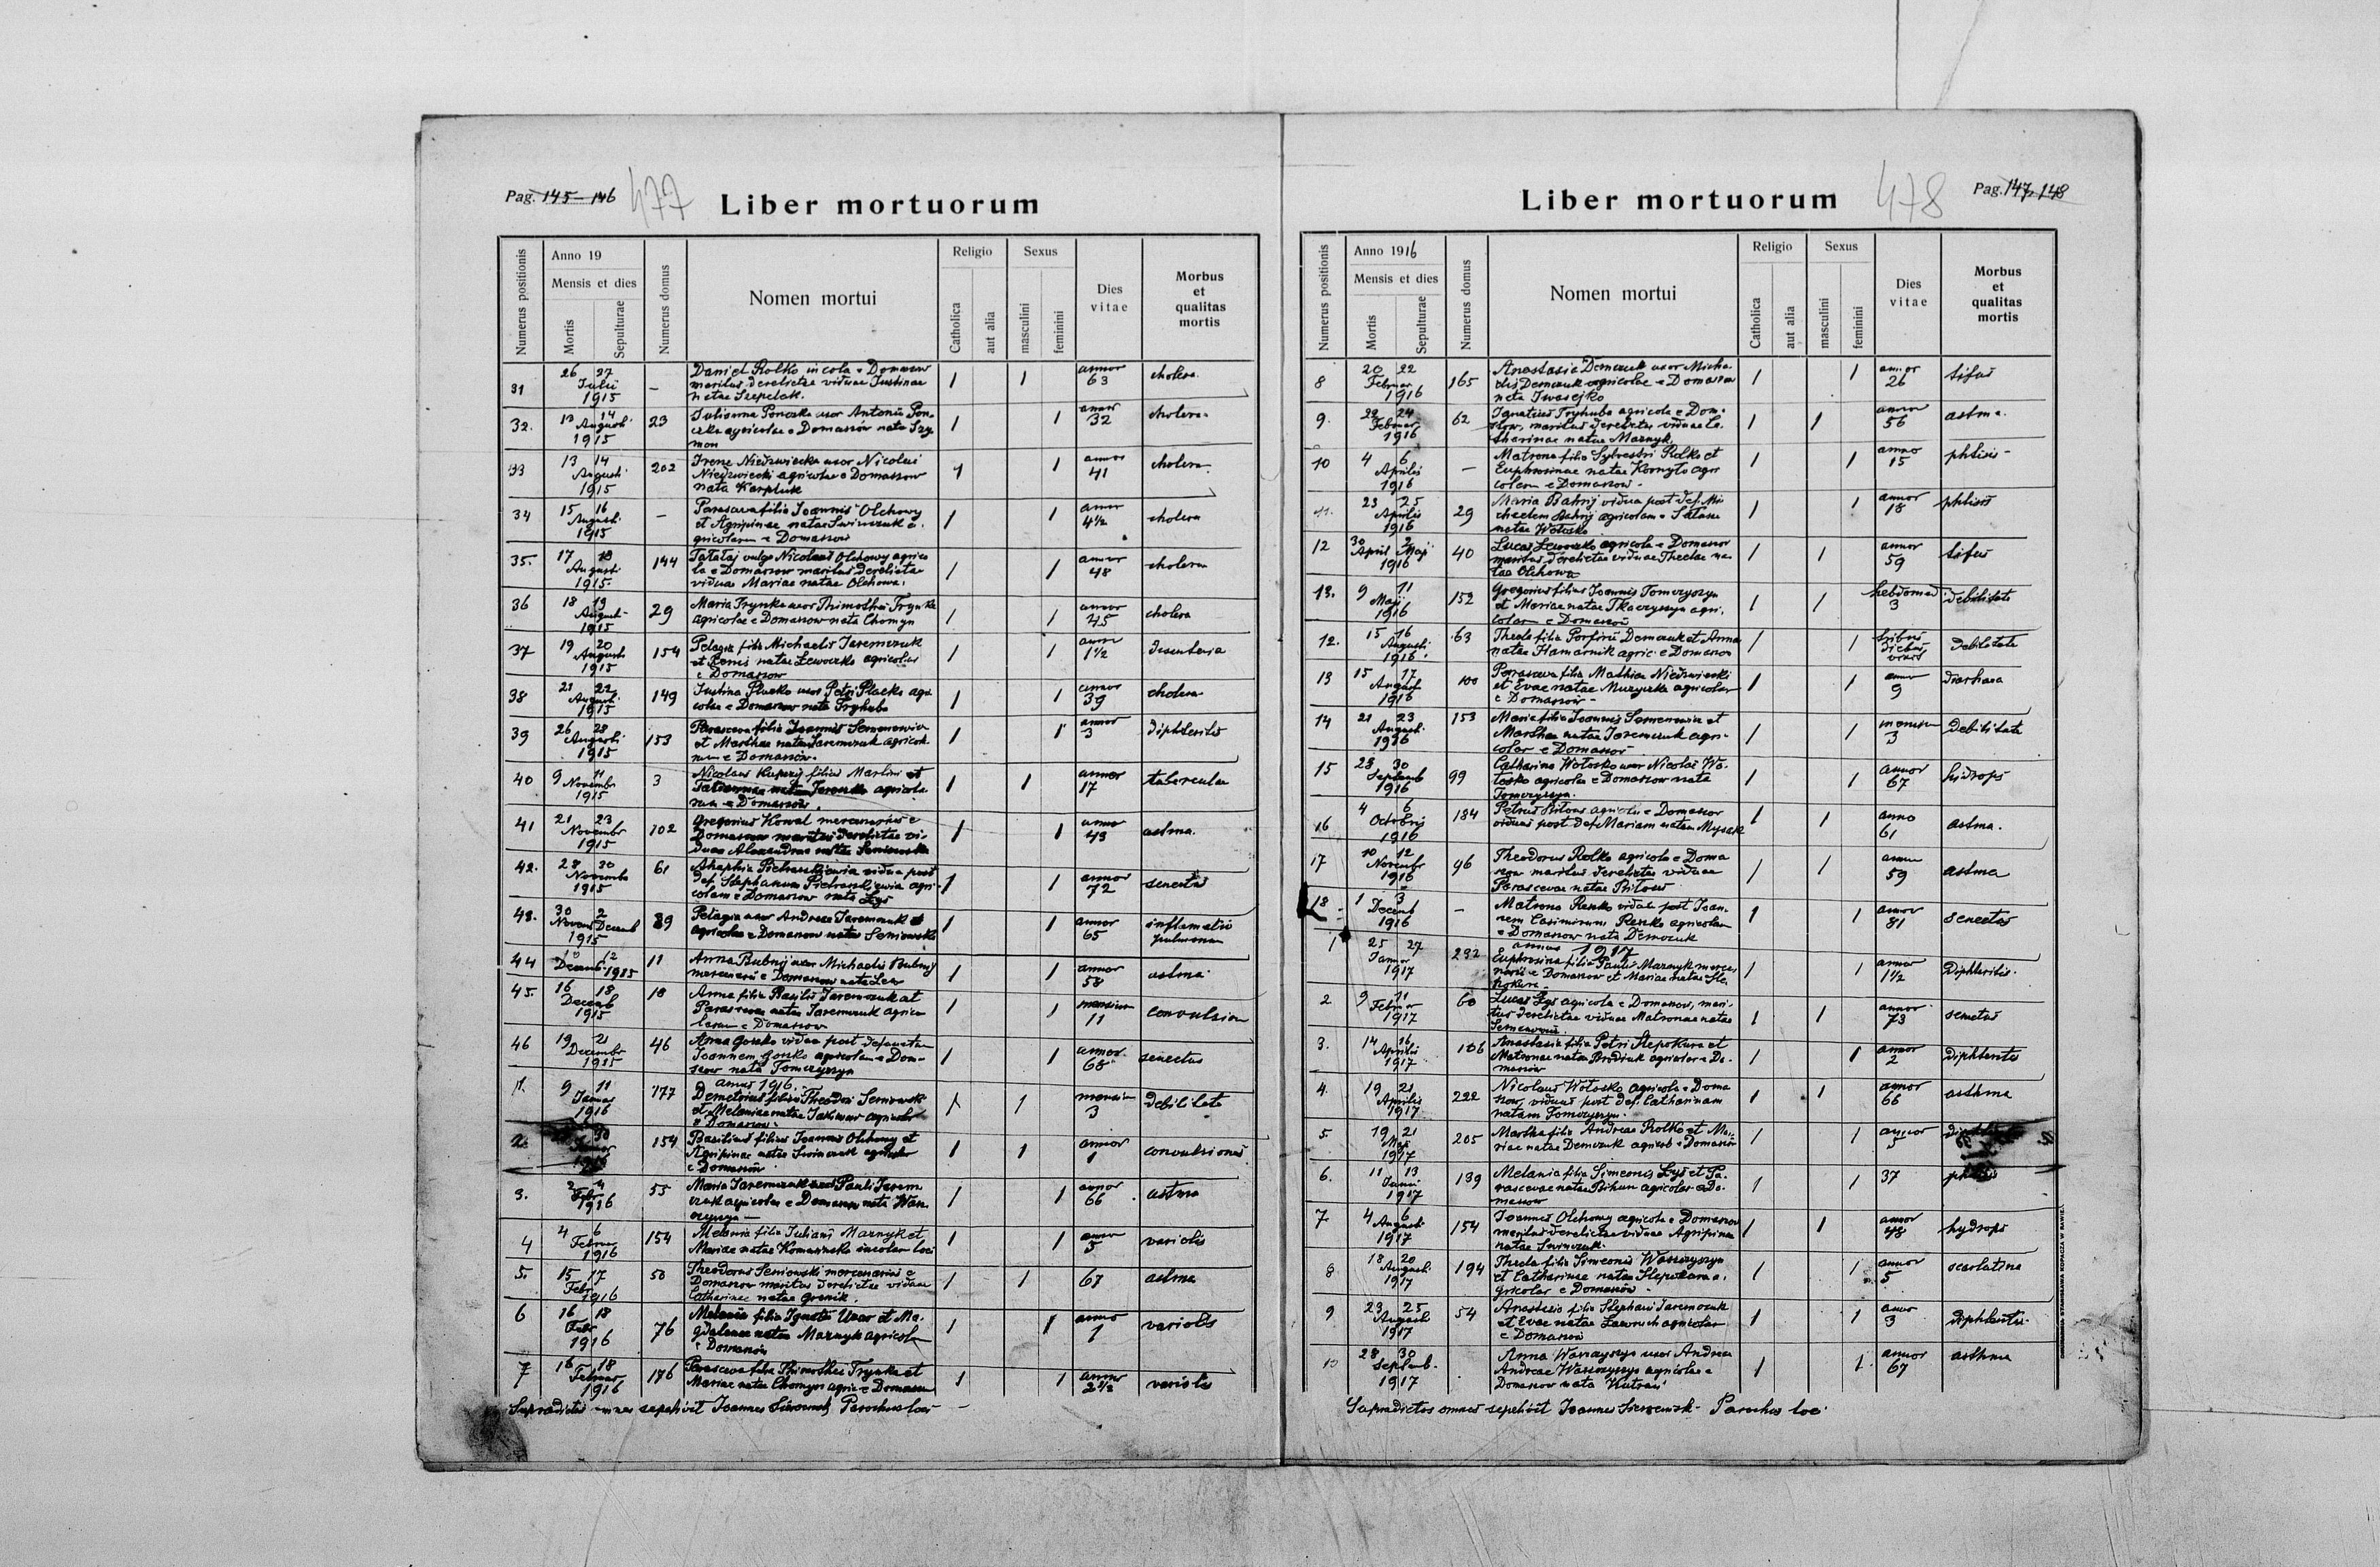 Pag. 145-146 477 Liber mortuorum
Numerus positionis
Anno 19
Mensis et dies
Mortis
Sepulturae
Numerus domus
Nomen mortui
Religio
Catholica
aut alia
Sexus
masculini
feminini
Dies vitae
Morbus et qualitas mortis
31 26 27 Julii 1915 — Daniel Rolko incola e Domaszow
maritus derelictae viduae Justinae
natae 1 1 annor 63 cholera
32. 13 14 Augusti 1915 23 Julianna uxor Antonii
agricolae e Domaszów nata Szy
mon 1 1 annor 32 cholera
33 13 14 Augusti 1915 202 Irene Niedzwiecka uxor Nicolai
Niedzwiecki agricolae e Domaszow
nata Karpluk 1 1 annor 41 cholera
34 15 16 Augusti 1915 — Parasceva filia Joannis Olchowy
et Agripinae natae Swinczuk a
gricolarum e Domaszow 1 1 annor 4½ cholera
35. 17 18 Augusti 1915 144 vulgo Nicolaus Olchowy agrico
la e Domaszow maritus derelictae
viduae Mariae natae Olchowa. 1 1 annor 48 cholera
36 18 19 August 1915 29 Maria Trynka uxor Thimothei Trynka
agricolae e Domaszow nata Chomyn 1 1 annor 45 cholera
37 19 20 Augusti 1915 154 Pelagia filia Michaelis Jaremczuk
et natae Lewoczko agricolar
e Domaszow 1 1 annor 1½
38 21 22 Augusti 1915 149 Justina uxor Petri agri
colae e Domaszow nata Tryhuba 1 1 annor 39 cholera
39 26 28 Augusti 1915 153 Parasceva filia Joannis Semenowicz
et Marthae natae Jaremczuk agricola
rum e Domaszów. 1 1 annor 3 diphteritis
40 9 11 Novembr 1915 3 Nicolaus filius Martini et
agricola
rum e Domaszów. 1 1 annor 17
41 21 23 Novembr 1915 102 Gregorius Kowal mercenarius e
Domaszow maritus derelictae vi-
duae Alexandrae natae Seniowska 1 1 annor 43 astma.
42. 28 30 Novembr 1915 61 vidua post
def. Stephanum agri-
colam e Domaszow nata Lys 1 1 annor 72 senectus
43. 30 2 Novem Decemb 1915 89 Pelagia uxor Andreae Jaremczuk
agricolae e Domaszow nata Seniowska 1 1 annor 65 inflamatio
pulmonum
44 12 Decemb 1915 11 Anna Bubnij uxor Michaelis Bubnij
mercenarii e Domaszow nata 1 1 annor 58 astma
45. 16 18 Decemb 1915 18 Anna filia Basilii Jaremczuk et
Parascevae natae Jaremczuk agrico
larum e Domaszow 1 1 mensium 11 convulsion
46 19 21 Decembr 1915 46 Anna Gorko vidua post defunctum
Joannem Gorko agricolam e Dom-
szow nata Tomczyszyn 1 1 annor. 68 senectus
1. 9 11 Januar 1916 177 annus 1916.
Demetrius filius Theodori Seniowski
et Melaniae natae agricolar
e Domaszow. 1 1 mensium 3 debilitate
2. 1916 154 Basilius filius Joannis Olchowy et
Agripinae natae Swinczuk agricolar
e Domaszów 1 1 annor 1 convulsiones
3. 2 4 Febr 1916 55 Maria Jaremczuk uxor Pauli Jarem
czuk agricolae e Domaszow nata Wasz
czyszyn — 1 1 annor 66 astma
4 4 6 Februar 1916 154 Melania filia Juliani Maznyk et
Mariae natae incolar loci 1 1 annor 5 variolis
5. 15 17 Febr 1916 50 Theodorus Seniowski mercenarius e
Domaszow maritus derelictae viduae
Catharinae natae 1 1 67 astma
6 16 18 Febr 1916 76 Melania filia Ignatii et Ma-
gdalenae natae Maznyk agricolar
e Domaszów 1 1 anno 1 variolis
7 16 18 Februar 1916 176 Parasceva filia Thimothei Trynka et
Mariae natae Chomyn agric. e Domaszow 1 1 annor 2½ variolis
Supradictos omnes sepelivit Joannes Parochus loci
Liber mortuorum 478 Pag. 147-148
Numerus positionis
Anno 1916
Mensis et dies
Mortis
Sepulturae
Numerus domus
Nomen mortui
Religio
Catholica
aut alia
Sexus
masculini
feminini
Dies vitae
Morbus et qualitas mortis
8 20 22 Februar 1916 165 Anastasia Demczuk uxor Micha
elis Demczuk agricolae e Domaszow
nata Iwasejko 1 1 annor 26 tifus
9. 22 24 Februar 1916 62 Ignatius Tryhuba agricola e Dom-
szow, maritus derelictae viduae Ca-
tharinae natae Maznyk. 1 1 annor 56 astma.
10 4 6 Aprilis 1916 — Matrona filia Sylvestri Rolko et
Euphrosinae natae agri
colarum e Domaszow. 1 1 anno 15 phtisis
11. 23 25 Aprilis 1916 29 Maria Bahrij vidua post def. Mi
chaelem Bahrij agricolam e
natae Wotosko 1 1 annor 18 phtisis
12 30 2 April Maj 1916 40 Lucas Lewoczko agricola e Domaszow
maritus derelictae viduae Theclae na-
tae Olchowa 1 1 annor 59 tifus
13. 9 11 Maji 1916 152 Gregorius filius Joannis Tomczyszyn
et Mariae natae Tkaczyszyn agri-
colarum e Domaszow 1 1 hebdomad 3 debilitate
12. 15 16 Augusti 1916 63 Thecla filia Porfirii Demczuk et Anna
natae Hamarnik agric. e Domaszow 1 1 tribus
diebus
vixit Debilitate
13 15 17 August 1916 100 Parasceva filia Mathiae Niedzwiecki
et Evae natae Muzyczka agricolar
e Domaszów 1 1 annor 9 diarhaea
14 21 23 Augusti 1916 153 Maria filia Joannis Semenowicz et
Marthae natae Jaremczuk agri-
colar e Domaszów 1 1 mensium 3 debilitate
15 28 30 Septemb 1916 99 Catharina Wotosko uxor Nicolai Wo-
tosko agricolae e Domaszow nata
Tomczyszyn. 1 1 annor 67 hidrops
16 4 6 Octobris 1916 184 Petrus Bitous agricola e Domaszow
viduus post def. Mariam natam Mysak 1 1 anno 61 astma.
17 10 12 Novembr 1916 96 Theodorus Rolko agricola e Doma
szow maritus derelictae viduae
Parascevae natae Bitous 1 1 annor 59 astma
18 1 3 Decemb 1916 — Matrona Renko vidua post Joan-
nem Casimirum Renko agricolam
e Domaszow nata Demczuk 1 1 annor 81 senectus
annus 1917
1 25 27 Januar 1917 292 Euphrosina filia Pauli Maznyk merce
narii e Domaszow et Mariae natae Ste
pokura. 1 1 annor 1½ Diphteritis.
2 9 11 Februar 1917 60 Lucas Lys agricola e Domaszow, mari-
tus derelictae viduae Matronae natae
1 1 annor 73 senectus
3. 14 16 Aprilis 1917 106 Anastasia filia Petri Stepokura et
Matronae natae Brodiuk agricolar e Do-
maszów 1 1 annor 2 diphteritis
4. 19 21 Aprilis 1917 222 Nicolaus Wotosko agricola e Doma
szow, viduus post def. Catharinam
natam Tomczyszyn. 1 1 annor 66 asthma
5. 19 21 Maji 1917 205 Martha filia Andreae Rolko et Ma-
riae natae Demczuk agricol. e Domaszów 1 1 annor 5
6. 11 13 Junii 1917 139 Melania filia Simeonis Lys et Pa-
rascevae natae Bihun agricolar e Do-
maszow 1 1 37 phtisis
7. 4 6 Augusti 1917 154 Joannes Olchowy agricola e Domaszow
maritus derelictae viduae Agripinae
natae Swinczuk. 1 1 annor 48 hydrops
8 18 20 Augusti 1917 194 Thecla filia Simeonis Waszczyszyn
et Catharinae natae Stepokura a.
gricolar e Domaszów 1 1 annor 5 scarlatina
9 23 25 Augusti 1917 54 Anastasia filia Stephani Jaremczuk
et Evae natae agricolar
e Domaszów 1 1 annor 3 diphteritis
10 28 30 Septemb. 1917 Anna Waszczyszyn uxor Andreae
Andreae Waszczyszyn agricolae e
Domaszow nata 1 1 annor 67 asthma
Supradictos omnes sepelivit Joannes Parochus loci